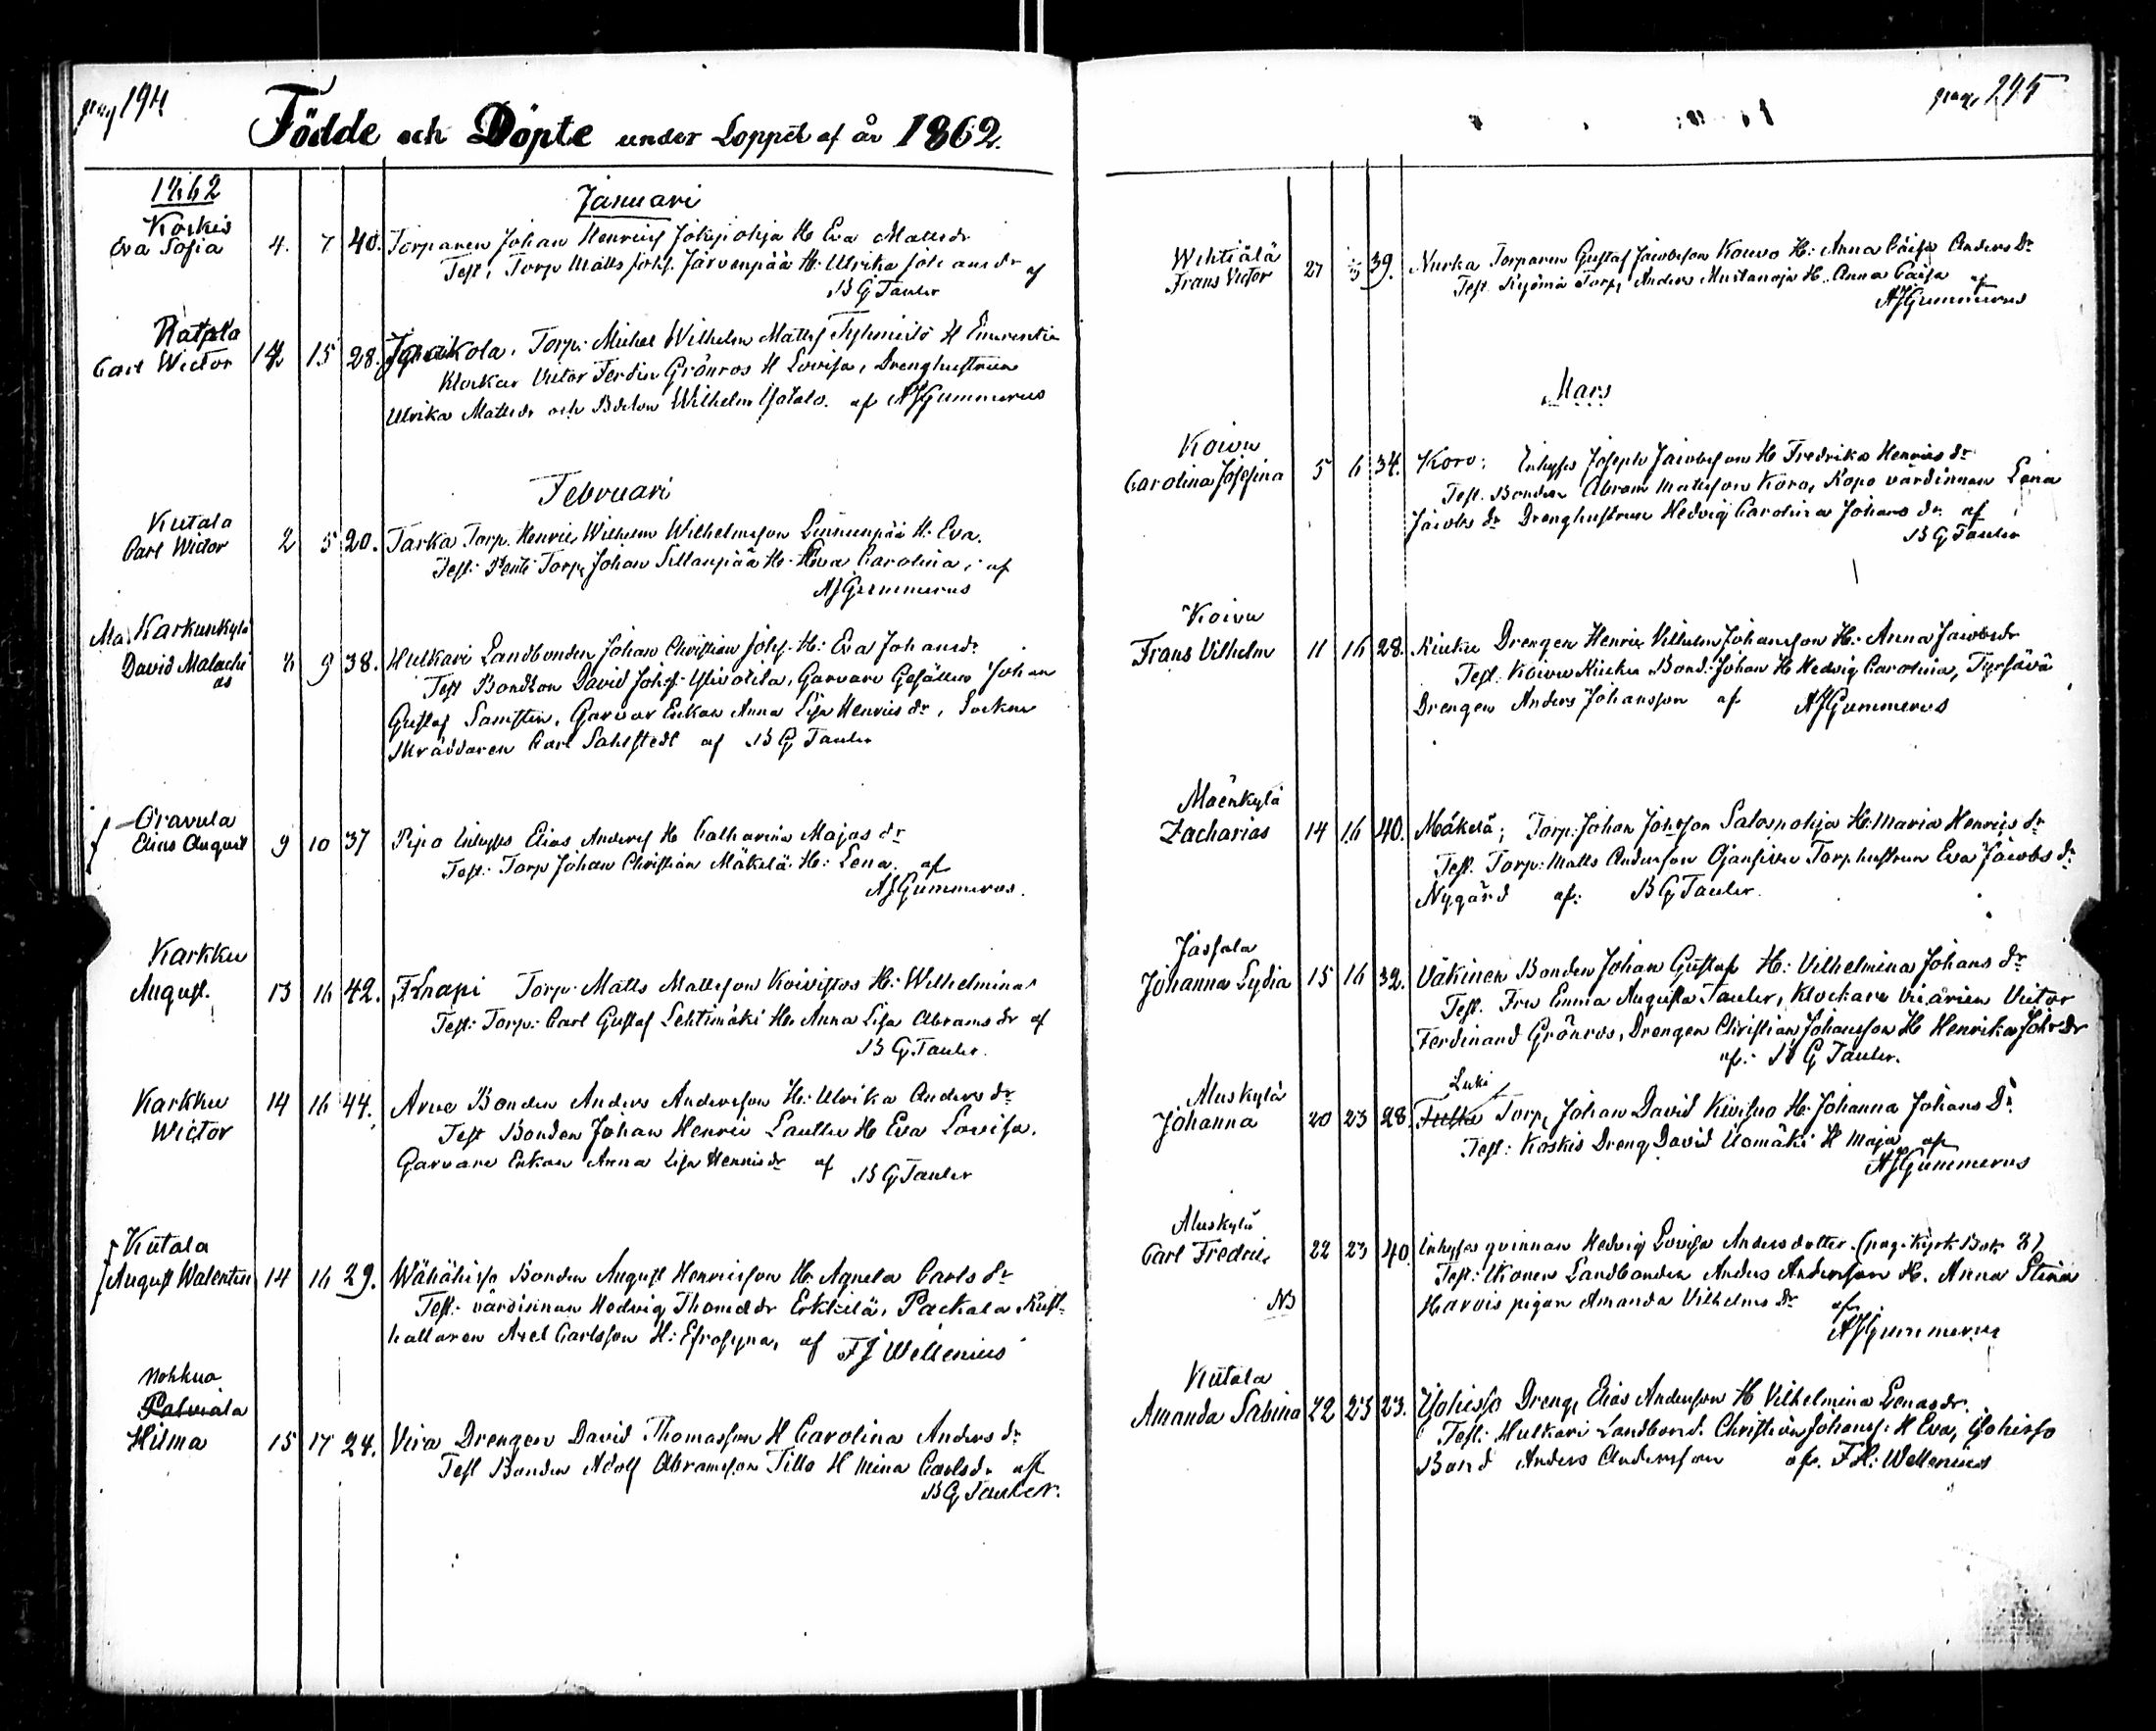 pag 194
Födde och Döpte under Loppet af år 1862.
1862
Januari
Koskis
Eva Sofia 4. 7 40. Torparen Johan Henricss Jokipohja H Eva Mattsdr
Test. Torp Matts Johss. Järvenpää H. Ulrika Johansdr af
B G Tauler
Ratala
Carl Wictor 14 15 28. Torp. Michel Wilhelm Mattss H Emerentia
Klockar Victor Ferdin Grönros H Lovisa, Drenghustrun
Ulrika Mattsdr och Bdeson Wilhelm af AJGummerus
Februari
Kutala
Carl Wictor 2 5 20. Tarka Torp. Henric Wilhelm Wilhelmsson Linnunpää H. Eva.
Test: Pentti Torp. Johan Sillanpää H. Eva Carolina, af
AJGummerus
Karkunkylä
David Malachi
as 9 38. Hulkari Landbonden Johan Christian Johss. H: Eva Johansdr
Test Bondson David Johss. Garvare Gesällen Johan
Gustaf Garvar Enkan Anna Lisa Henricsdr, Sockne
Skräddaren Carl Sahlstedt af B G Tauler
Oravula
Elias August 9 10 37 Pipo Inhyses Elias Anderss H Catharina Majasdr
Test: Torp Johan Christian Mäkelä H: Lena. af
AJGummerus.
Karkku
August. 13 16 42. Knapi Torp. Matts Mattsson Koivistos H: Wilhelmina
Test: Torp: Carl Gustaf Lehtimäki H. Anna Lisa Abramsdr af
B G Tauler.
Karkku
Wictor 14 16 44. Arve Bonden Anders Andersson H: Ulrika Andersdr
Test Bonden Johan Henric Lauttu H Eva Lovisa.
Garvare Enkan Anna Lisa Henricsdr af B G Tauler
Kutala
August Walentin 14 16 29. Wähähisso Bonden August Henricsson H: Agneta Carlsdr
Test: värdinnan Hedvig Thomædr Erkkilä, Packala Rust-
hallaren Axel Carlsson H: Efrosyna, af F J Wellenius
Nohkua
Palviala
Hilma 15 17 24. Vira Drengen David Thomasson H Carolina Andersdr
Test Bonden Adolf Abramsson Tillo H Mina Carlsdr af
B G Tauler.
pag. 295
Wihtiälä
Frans Victor 27 39. Nurka Torparen Gustaf Jacobsson Koivo H: Anna Caisa AndersDr
Test. Kyömä Torp. Anders Mustanoja H. Anna Caisa af
AJGummerus
Mars
Koivu
Carolina Josefina 5 6 34. Koro: Inhyses Joseph Jacobsson H Fredrika Henricsdr
Test. Bonden Abram Mattsson Koro, Kopo värdinnan Lena
Jacobsdr Drenghustrun Hedvig Carolina Johansdr af
B G Tauler
Koivu
Frans Vilhelm 11 16 28. Kiuku Drengen Henric Vilhelm Johansson H: Anna Jacobsdr
Test: Koivu Kiuku Bond: Johan H Hedvig Carolina, Tyrsävä
Drengen Anders Johansson af AJGummerus
Mäenkylä
Zacharias 14 16 40. Mäkelä; Torp: Johan Johsson Salospohja H: Maria Henricsdr
Test. Torp: Matts Andersson Ojansivu Torp hustrun Eva Jacobsdr
Nygård af: B G Tauler.
Jassala
Johanna Lydia 15 16 32. Väkinen Bonden Johan Gustafs H: Vilhelmina Johansdr
Test. Fru Emma Augusta Tauler, Klockare Vicarien Victor
Ferdinand Grönros, Drengen Christian Johansson H Henrika Johsdr
af: B G Tauler.
Aluskylä Luki
Johanna 20 23 28. Torp. Johan David Kivisuo H: Johanna JohansDr
Test: Koskis Dreng David Uomäki H Maja af
AJGummerus
Aluskylä
Carl Fredric 22 23 40. Inhyses qvinnan Hedvig Lovisa Andersdotter. (pag: Kyrk Bok 8)
Test: Ukonen Landbonden Anders Andersson H. Anna Stina
NB Harvis pigan Amanda Vilhelmsdr af
AJGummerus
Kutala
Amanda Sabina 22 23 23. Isohisso Dreng. Elias Andersson H Vilhelmina Lenasdr.
Test: Hulkari Landbond. Christian Johanss: H Eva, Isohisso
Bond Anders Andersson af. F H: Wellenius